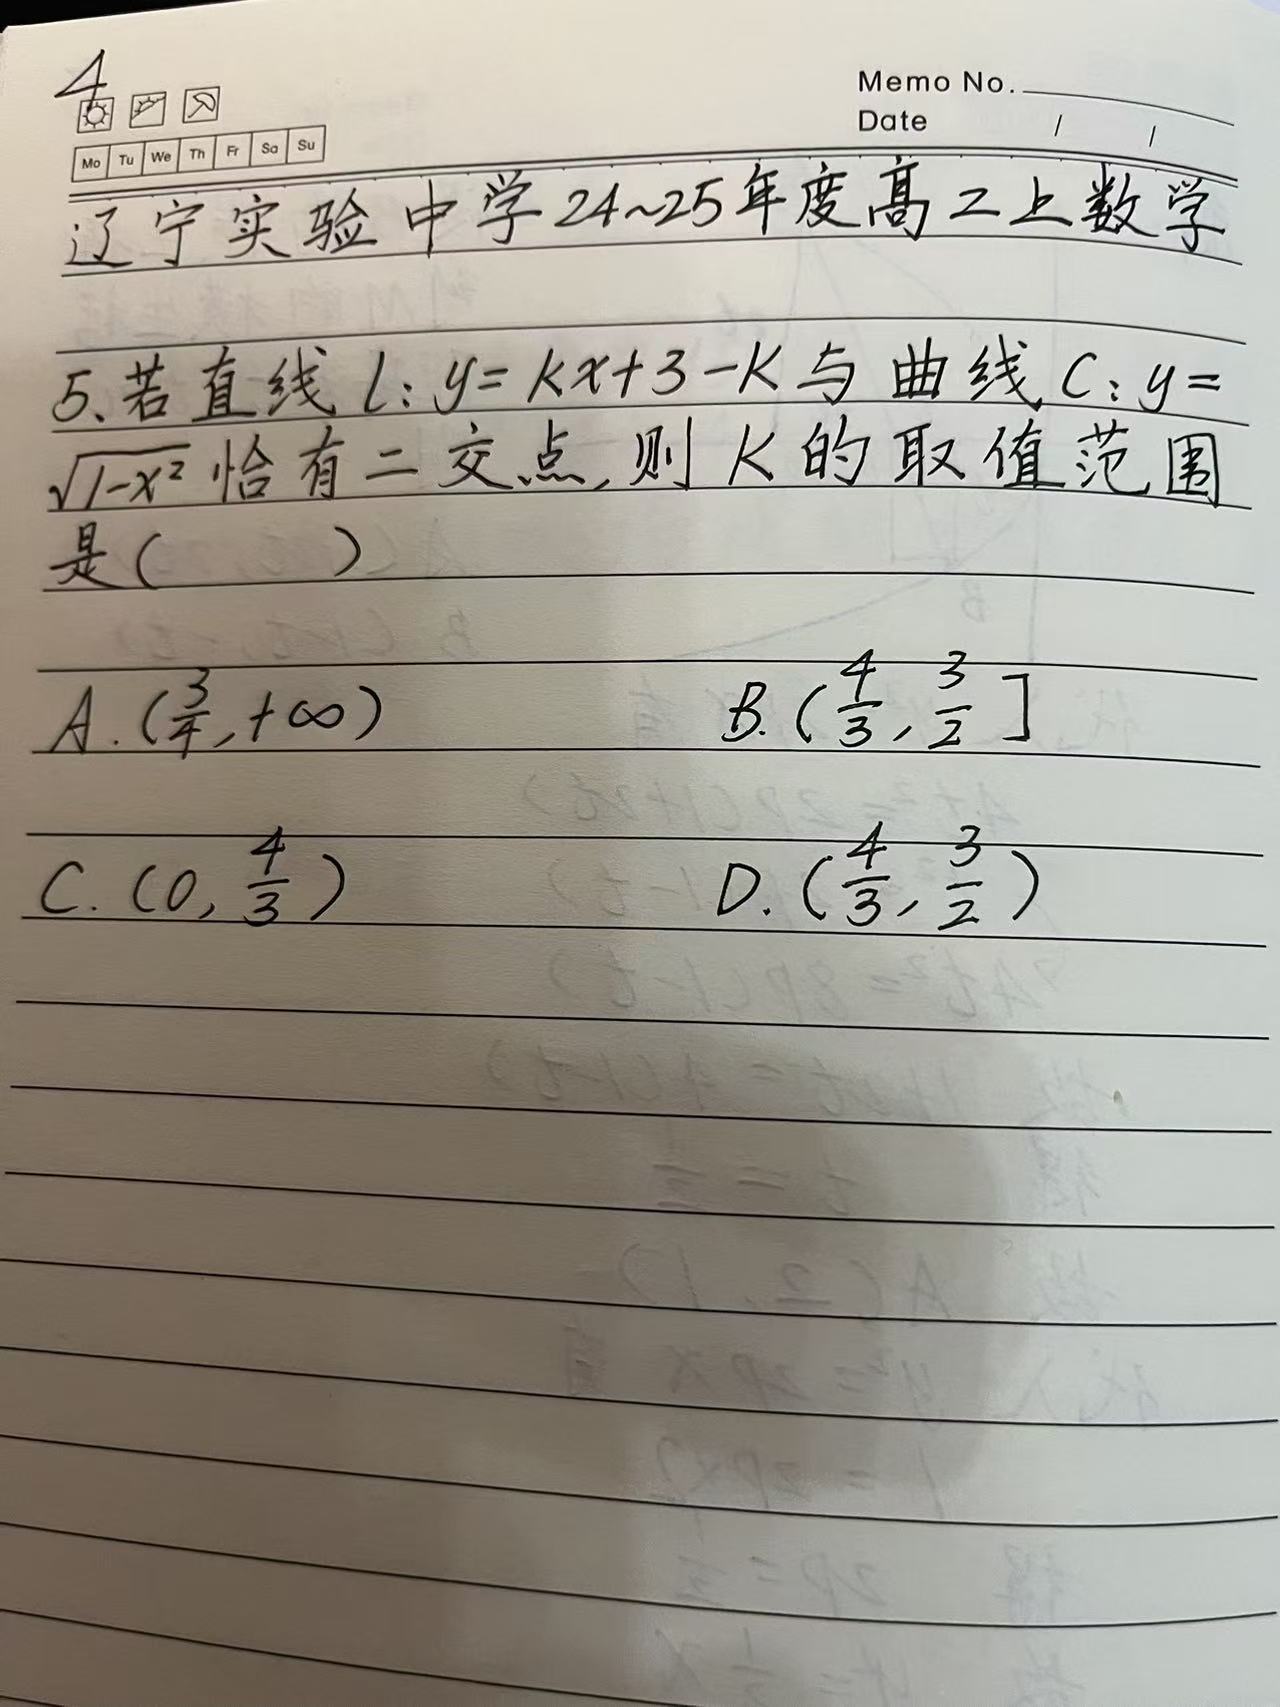 4
Memo No.
Date / /
Mo Tu We Th Fr Sa Su
辽宁实验中学24~25年度高二上数学
5.若直线l:y=kx+3-k与曲线C:y=
√(1-x²)恰有二交点,则k的取值范围
是( )
A.(3/4,+∞) B.(4/3,3/2]
C.(0,4/3) D.(4/3,3/2)